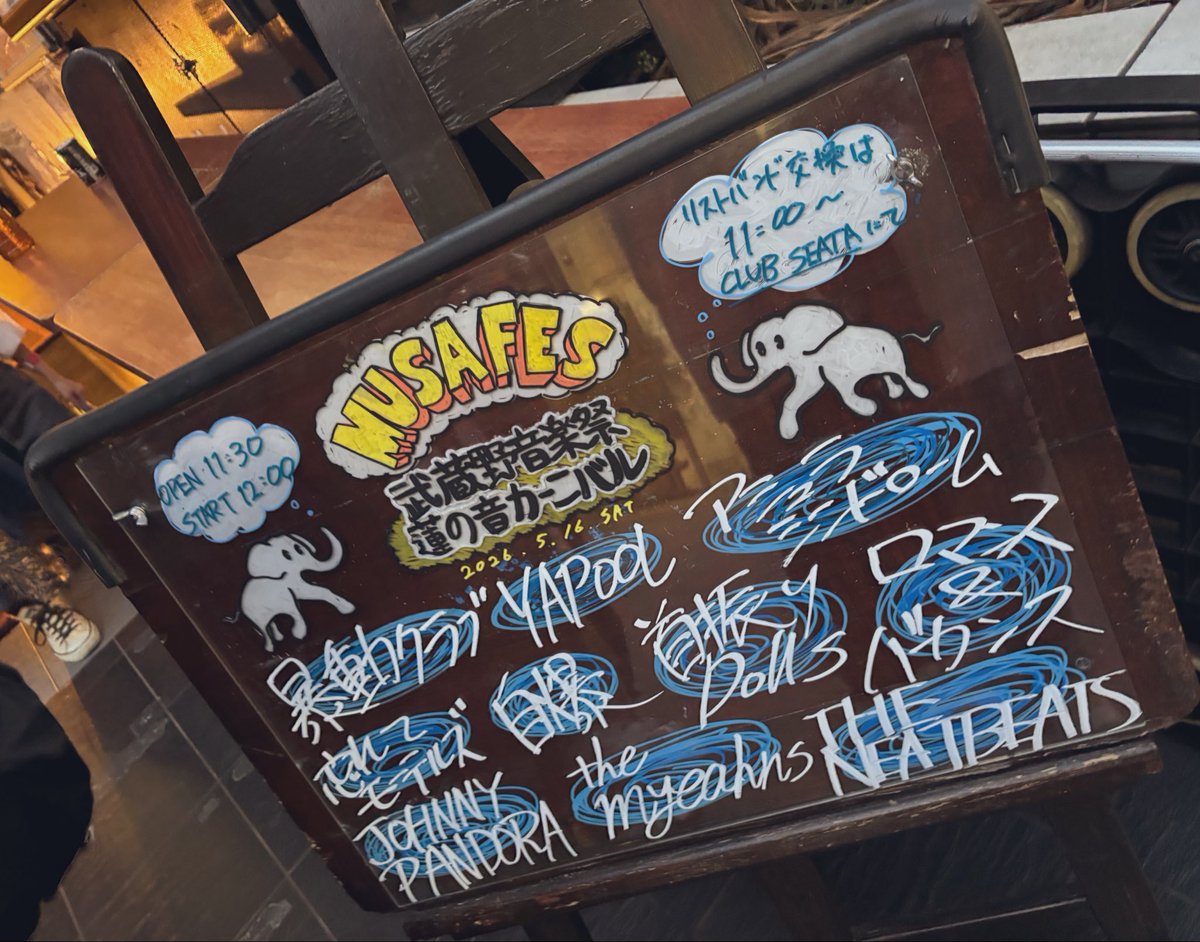 リストバンド交換は
11:00〜
CLUB SEATAにて
MUSAFES
武蔵野音楽祭
蓮の音カーニバル
2026.5.16.SAT
OPEN 11:30
START 12:00
暴動クラブ
YAPOOL
ロマンス
&
バカンス
忘れて
モーテルズ
自爆
首振り
Dolls
JOHNNY
PANDORA
the
myeahns
THE
NEATBEATS